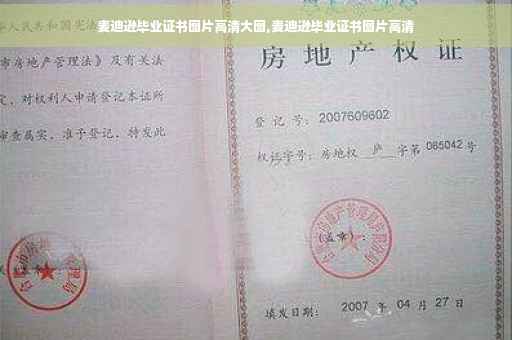 麦迪逊毕业证书图片高清大图,麦迪逊毕业证书图片高清
人民共和国宪法
市房地产管理法》及有关法
定，对权利人申请登记本证所
审查属实，准予登记，特发此
房地产权证
登记号：2007609602
权证字号：房地权 庐 字第 065042 号
(盖章)：
填发日期：2007 年 04 月 27 日